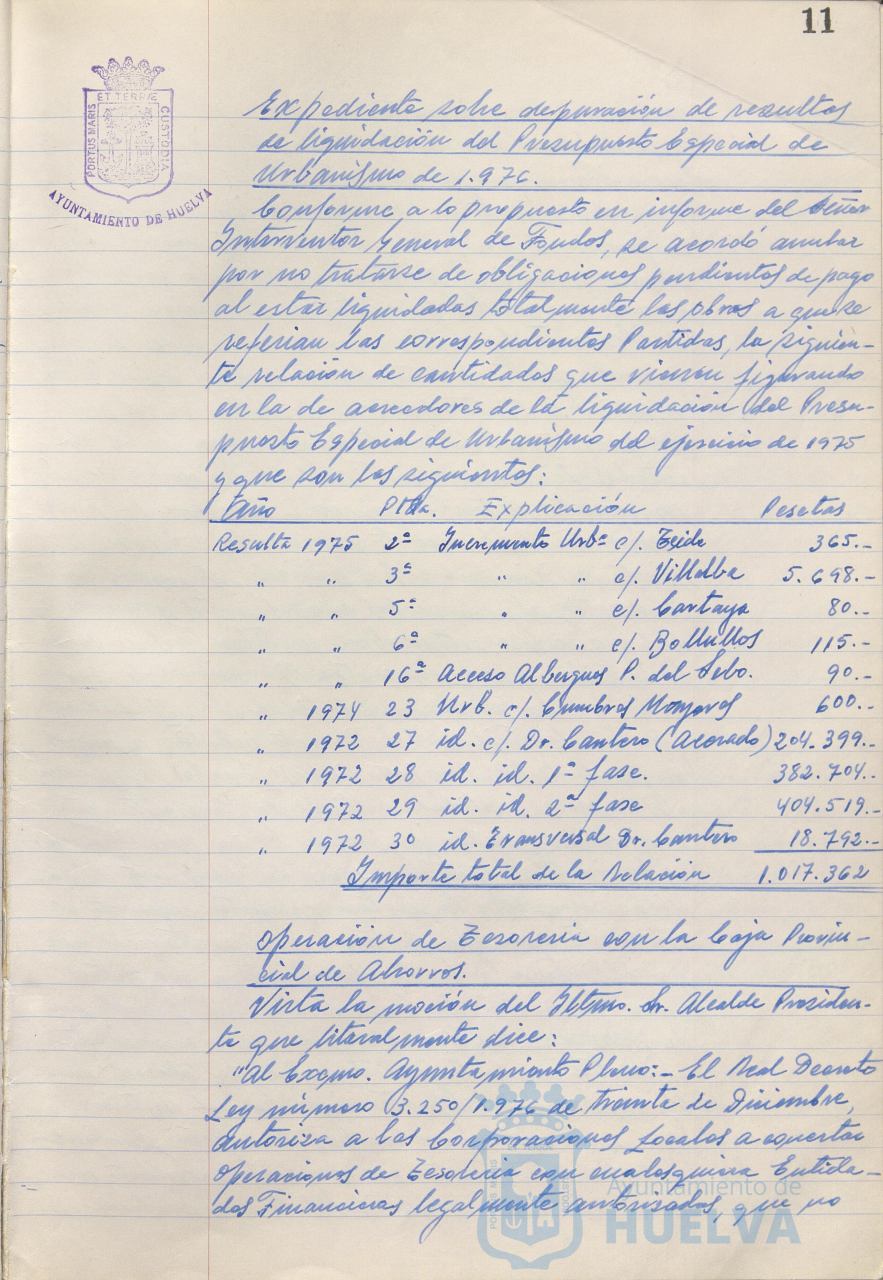 11
PORTUS MARIS
ET TERRÆ
CUSTODIA
AYUNTAMIENTO DE HUELVA
Expediente sobre depuración de resultas
de liquidación del Presupuesto Especial de
Urbanismo de 1.976.
Conforme a lo propuesto en informe del Señor
Interventor General de Fondos, se acordó anular
por no tratarse de obligaciones pendientes de pago
al estar liquidadas totalmente las obras a que se
referian las correspondientes Partidas, la siguien-
te relación de cantidades que vienen figurando
en la de acreedores de la liquidación del Presu-
puesto Especial de Urbanismo del ejercicio de 1975
y que son las siguientes:
Año Ptda. Explicación Pesetas
Resulta 1975 2ª Incremento Urbª c/. Teide 365.-
" " 3ª " " c/. Villalba 5.698.-
" " 5ª " " c/. Cartaya 80.-
" " 6ª " " c/. Bollullos 115.-
" " 16ª Acceso Albergues P. del Sebo. 90.-
" 1974 23 Urb. c/. Cumbres Mayores 600.-
" 1972 27 id. c/. Dr. Cantero (Acerado) 204.399.-
" 1972 28 id. id. 1ª fase. 382.704.-
" 1972 29 id. id. 2ª fase 404.519.-
" 1972 30 id. Transversal Dr. Cantero 18.792.-
Importe total de la Relación 1.017.362
Operación de Tesoreria con la Caja Provin-
cial de Ahorros.
Vista la moción del Iltmo. Sr. Alcalde Presiden-
te que literalmente dice:
"Al Excmo. Ayuntamiento Pleno:- El Real Decreto
Ley número 3.250/1.976 de treinta de Diciembre,
autoriza a las Corporaciones Locales a concertar
operaciones de Tesoreria con cualesquiera Entida-
des Financieras legalmente autorizadas, que no
Ayuntamiento de
HUELVA